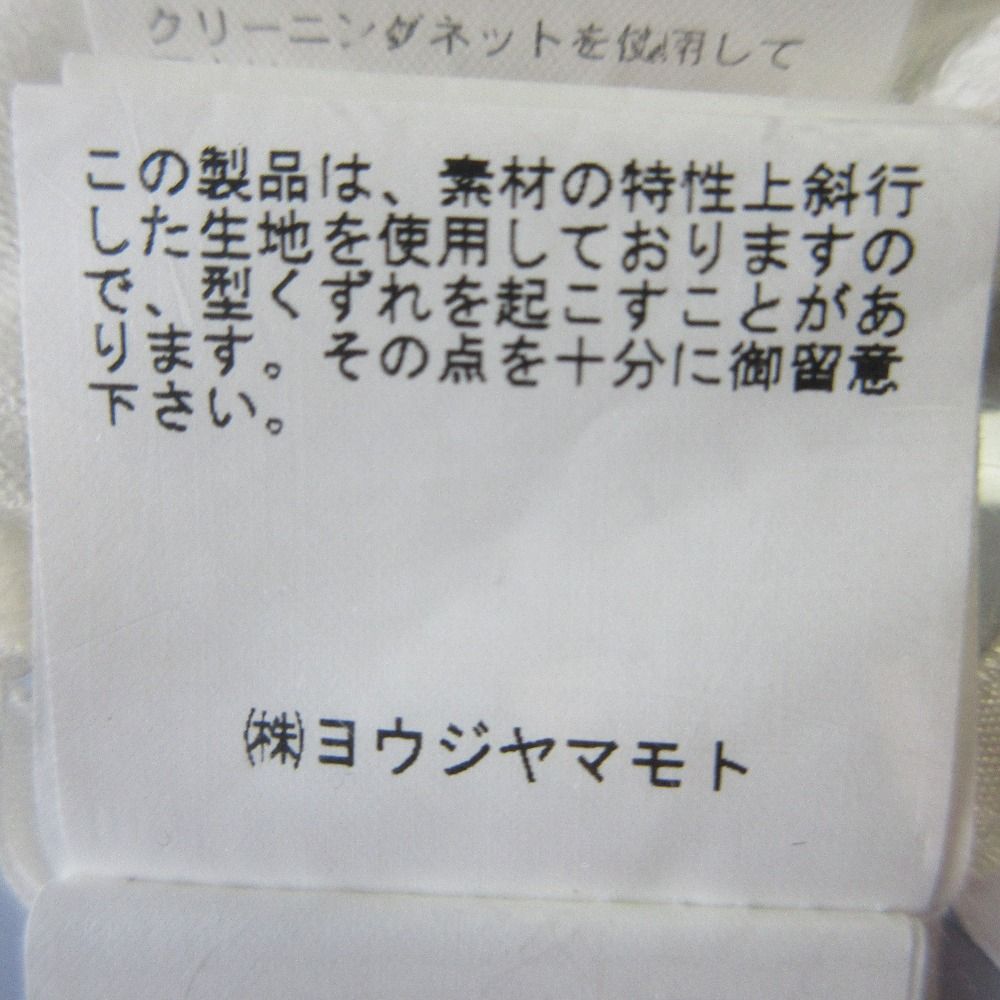 クリーニングネットを使用して
この製品は、素材の特性上斜行
した生地を使用しておりますの
で、型くずれを起こすことがあ
ります。その点を十分に御留意
下さい。
㈱ヨウジヤマモト